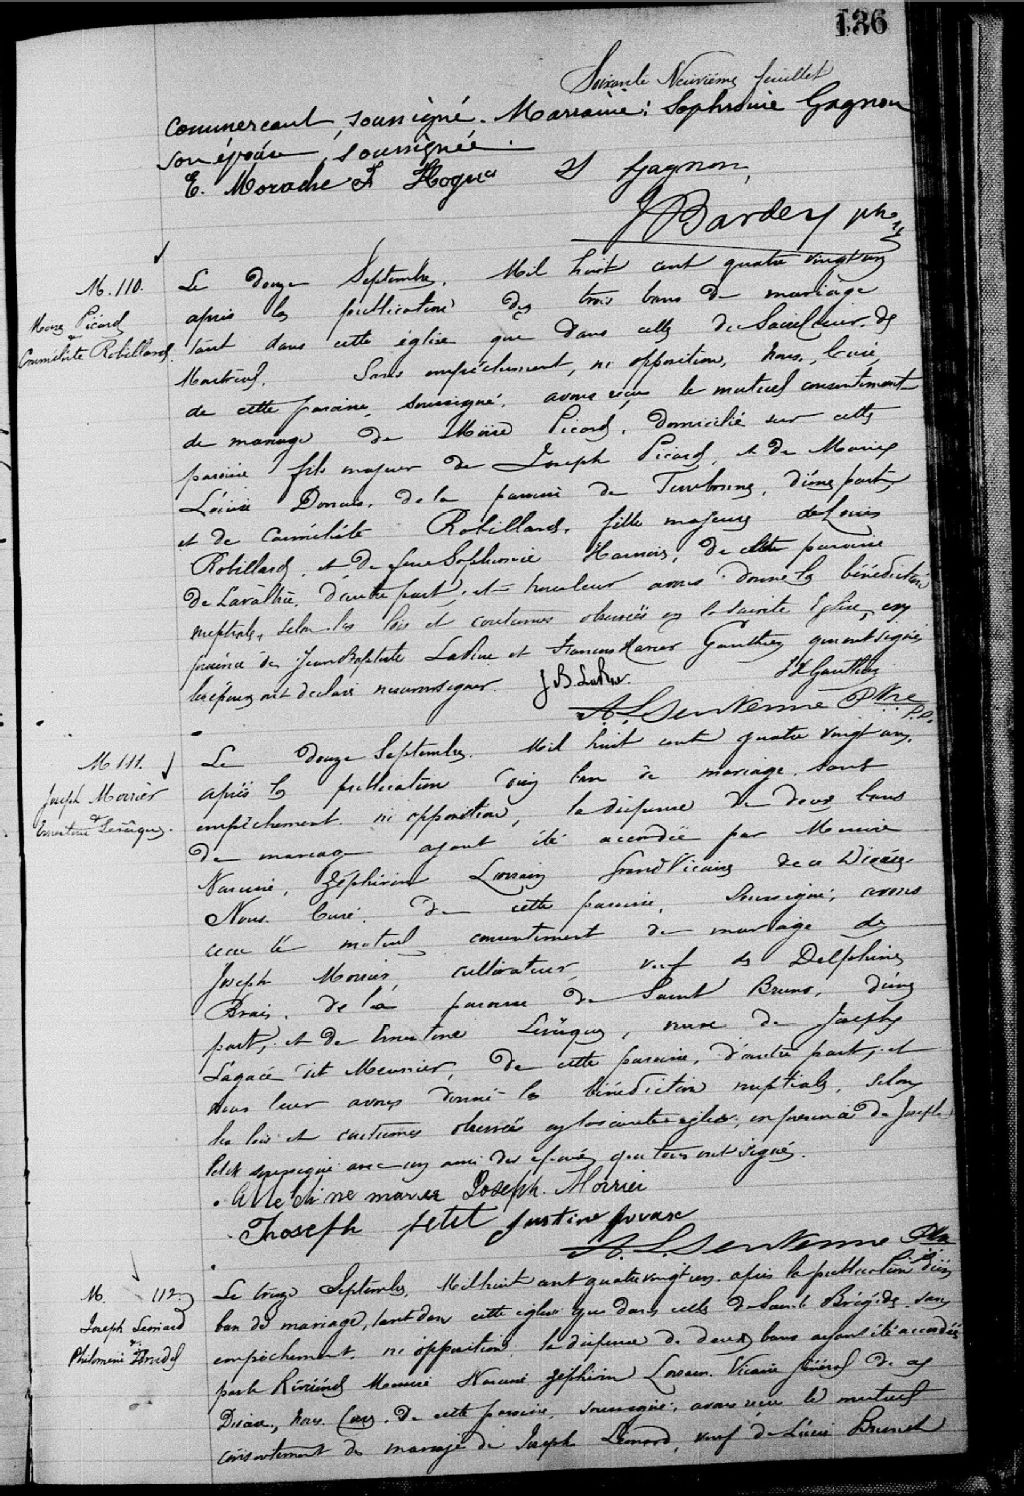 136
Soixante Neuvième feuillet
commercant, soussigné. Marraine: Sophronie Gagnon
son épouse, soussignée.
E. Morache F Hogue S Gagnon,
J Bardey ptre
M. 110.
Moïse Picard
&
Comélite Robillard.
Le douze Septembre, Mil huit cent quatre vingt un
après la publication des trois bans de mariage
tant dans cette église que dans celle du Sacré Coeur de
Montréal. Sans empêchement, ni opposition, nous, Curé,
de cette paroisse, soussigné, avons reçu le mutuel consentement
de mariage de Moïse Picard, domicilié sur cette
paroisse fils majeur de Joseph Picard, et de Marie
Louise de la paroisse de Terrebonne, d'une part,
et de Robillard, fille majeure de Louis
Robillard, et de feue Sophronie de cette paroisse
de Lavaltrie, d'autre part; et nous leur avons donné la bénédiction
nuptiale, selon les lois et coutumes observées en la Sainte Eglise, en
présence de Jean Baptiste et Francois Xavier Gauthier qui ont signé
les époux ont déclaré ne savoir signer. J B F X Gauthier
A. L. Sentenne Ptre
P.S.
M 111.
Joseph Morrier
&
Ernestine Levêque.
Le douze Septembre, Mil huit cent quatre vingt un,
après la publication d'un ban de mariage sans
empêchement ni opposition, la dispense de deux bans
de mariage ayant été accordée par Messire
Narcisse, Zéphirin Lorrain Grand Vicaire de ce Diocèse
Nous Curé de cette paroisse, soussigné, avons
recu le mutuel consentement de mariage de
Joseph Morrier, cultivateur, veuf de Delphine
Brais, de la paroisse de Saint Bruno, d'une
part, et de Ernestine Levêque, veuve de Joseph
Lagacé dit Meunier, de cette paroisse, d'autre part, et
nous leur avons donné la bénédiction nuptiale, selon
les lois et coutumes observées en la sainte église, en présence de Joseph
Petit soussigné avec un ami des époux qui tous ont signé.
Joseph Morrier
Thoseph petit Justine
A. L. Sentenne Ptre
P.S.
M. 112
Joseph Leonard
&
Philomène Trudel
Le treize Septembre, Mil huit cent quatre vingt un, après la publication d'un
ban de mariage, tant dans cette église que dans celle de Sainte Brigide, sans
empêchement, ni opposition la dispense de deux bans ayant été accordée
par le Révérend Messire Narcisse Zéphirin Lorrain Vicaire Général de ce
Diocèse, Nous Curé de cette paroisse, soussigné, avons recu le mutuel
consentement de mariage de Joseph Leonard, veuf de Lucie Brunet